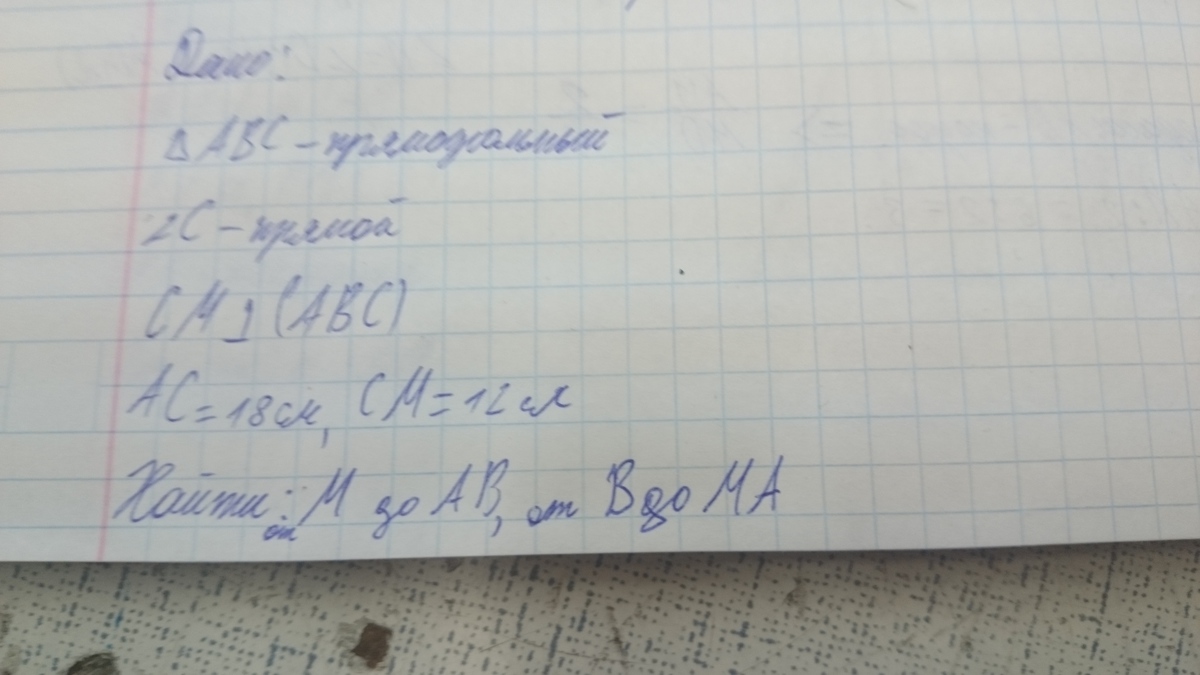 Дано:
△ ABC - прямоугольный
∠C - прямой
CM ⊥ (ABC)
AC = 18 см, CM = 12 см
Найти: от M до AB, от B до MA